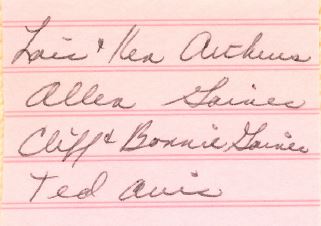 Lois & Ken Aitkens
Allen Gaines
Cliff & Bonnie Gaines
Ted Avis